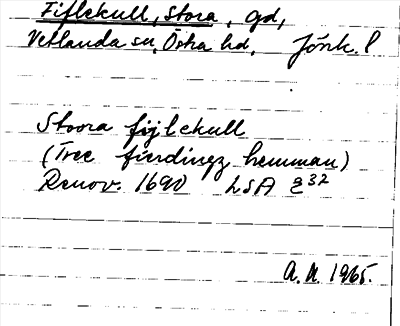 Fiflekull, Stora, gd,
Vetlanda sn, Östra hd, Jönk. l
Stoora fijlekull
(Tree fierdingz hemman)
Renov. 1690 LSA E32
A.N. 1965.